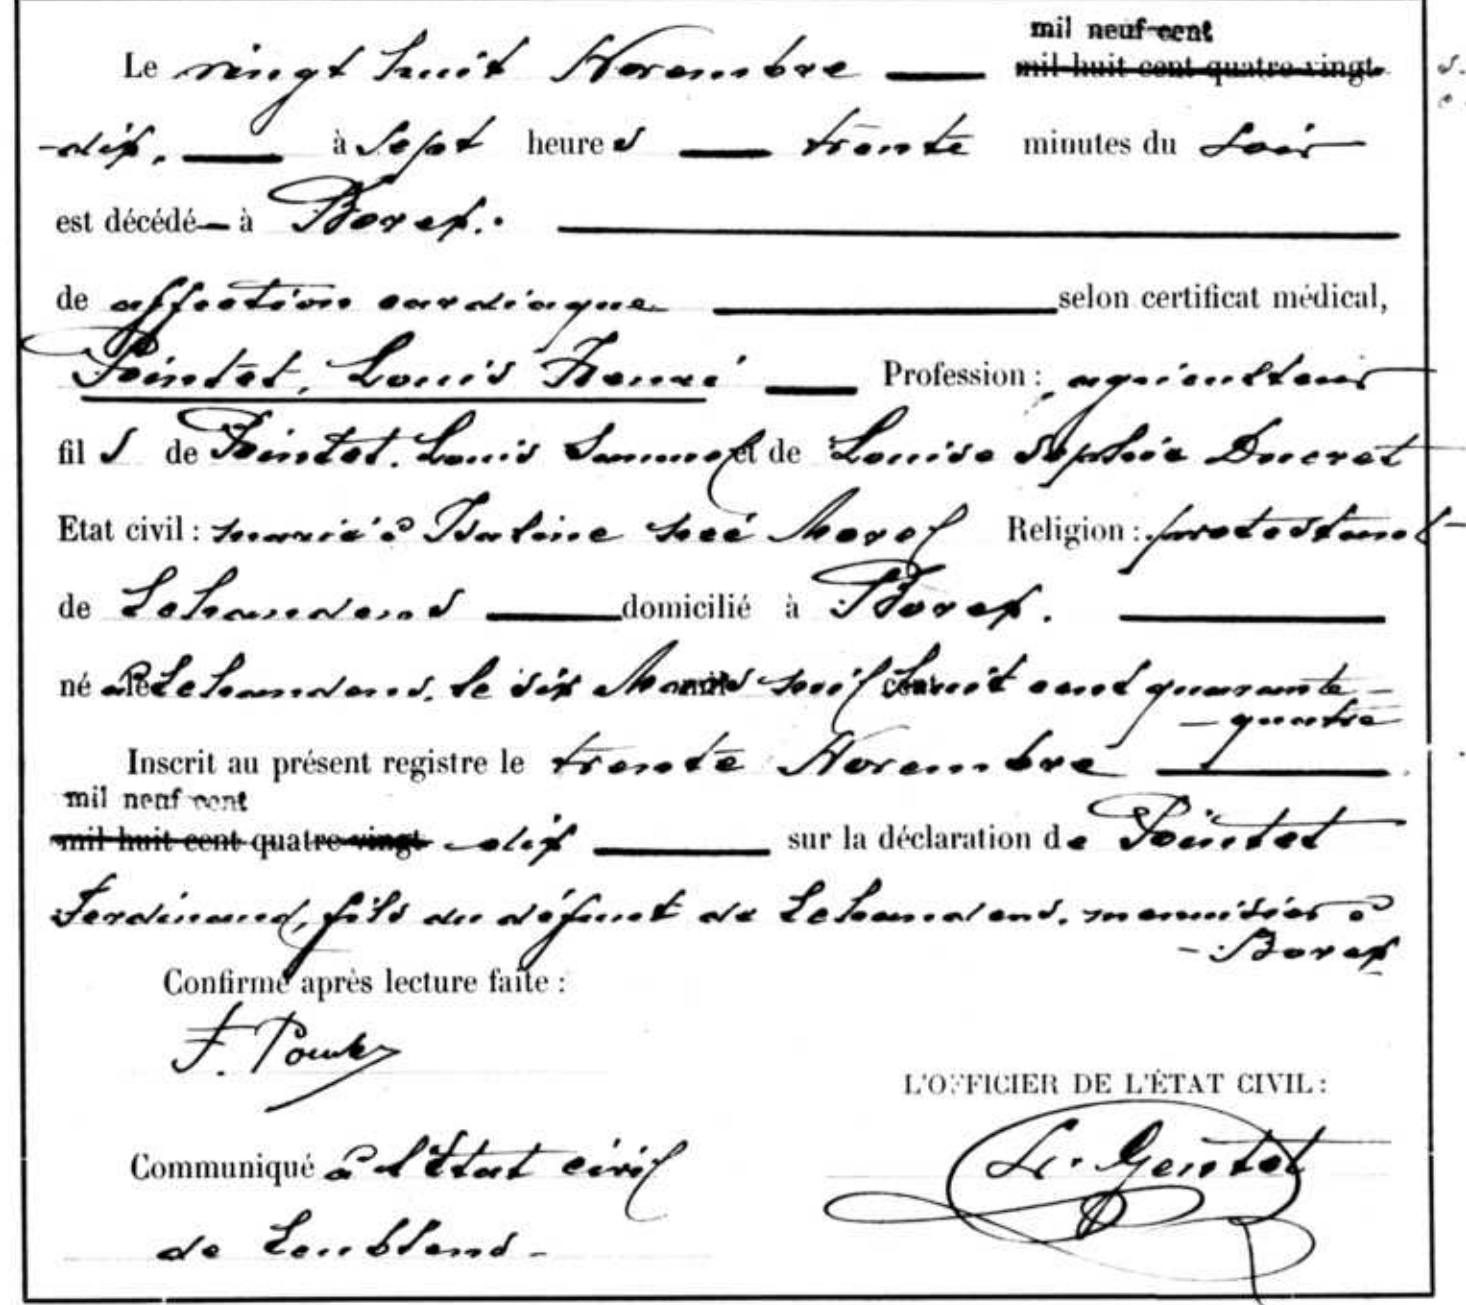 mil neuf cent
Le vingt huit Novembre mil huit cent quatre-vingt
-dix, à Sept heures trente minutes du soir
est décédé à Borex.
de affection cardiaque selon certificat médical,
Pointet, Louis Henri Profession: agriculteur
fils de Pointet, Louis Samuel et de Louise Sophie Ducret
Etat civil: marié à Isaline née Morel Religion: protestant
de domicilié à Borex.
né à le le six Mars mil huit cent quarante-
-quatre
Inscrit au présent registre le trente Novembre
mil neuf cent
mil huit cent quatre-vingt dix sur la déclaration de Pointet
Ferdinand, fils du défunt de menuisier à
-Borex
Confirmé après lecture faite:
F. Pointet
L'OFFICIER DE L'ÉTAT CIVIL:
Communiqué à l'État civil
de